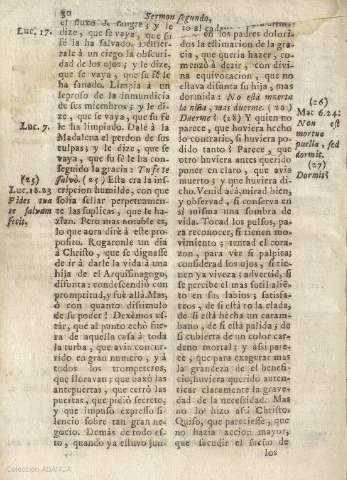 80
Sermon segundo,
Luc. 17.
el fluxo de sangre; y le
dize, que se vaya, que su
fè la ha salvado.
rale à un ciego la obscuri-
dad de los ojos; y le dize,
que se vaya, que su fè le
ha sanado. Limpia à un
leproso de la inmundicia
de sus miembros; y le di-
ze, que se vaya, que su fè
Luc. 7.
le ha limpiado. Dale à la
Madalena el perdon de sus
culpas; y le dize, que se
vaya, que su fè le ha con-
seguido la gracia: Tu fe te
(25)
Luc. 18.
Fides tua
te salvam
fecit.
salvò. (25) Esta era la ins-
cripcion humilde, con que
solia sellar perpetuamen-
te las suplicas, que le ha-
zian. Pero mas notable es,
lo que aora dirè à este pro-
posito. Rogaronle un dia
à Christo, que se dignasse
de ir à darle la vida à una
hija de el Arquisinagogo,
difunta: condescendiò con
promptitud, y fuè allà. Mas,
ò con quanto dissimulo
de su poder! Dexèmos es-
tár, que al punto echò fue-
ra de aquella casa à toda
la turba, que avia concur-
rido en gran numero, y à
todos los trompeteros,
que lloravan; que baxò las
antepuertas, y que cerrò las
puertas, que pidiò secreto,
y que impuso expresso si-
lencio sobre tan gran ne-
gocio. Demàs de todo es-
to, quando ya estuvo jun-
to al
en los padres dolori-
dos la estimacion de la gra-
cia, que queria hazer, co-
menzò à dezir, con divi-
na equivocacion, que no
estava difunta su hija, mas
dormida: No està muerta
(26)
Mat. 6. 24:
Non est
mortua
puella, sed
dormit.
la niña, mas duerme. (26)
Duerme? (28) Y quien no
(27)
Dormit?
parece, que huviera hecho
lo contrario, si huviera po-
dido tanto? Parece, que
otro huviera antes querido
poner en claro, que avia
muerto; y que huviera di-
cho. Venid acà, mirad bien,
y observad, si conserva en
si misma una sombra de
vida. Tocad los pulsos, pa-
ra reconocer, si tienen mo-
vimiento; tentad el cora-
zon, para ver si palpita;
considerad los ojos, si tie-
nen ya viveza; advertid, si
se percibe el mas sutil alie-
to en sus labios; satisfa-
ceos, de si està toda elada,
de si està hecha un caram-
bano, de si està palida; de
si cubierta de un color car-
deno mortal; y assi pare-
ce, que para exagerar mas
la grandeza de el benefi-
cio, huviera querido auten-
ticar claramente la grave-
dad de la necessidad. Mas
no lo hizo assi Christo:
Quiso, que pareciesse, que
no hazia accion mayor,
que sacudir el sueño de
los
Colección ADANCA